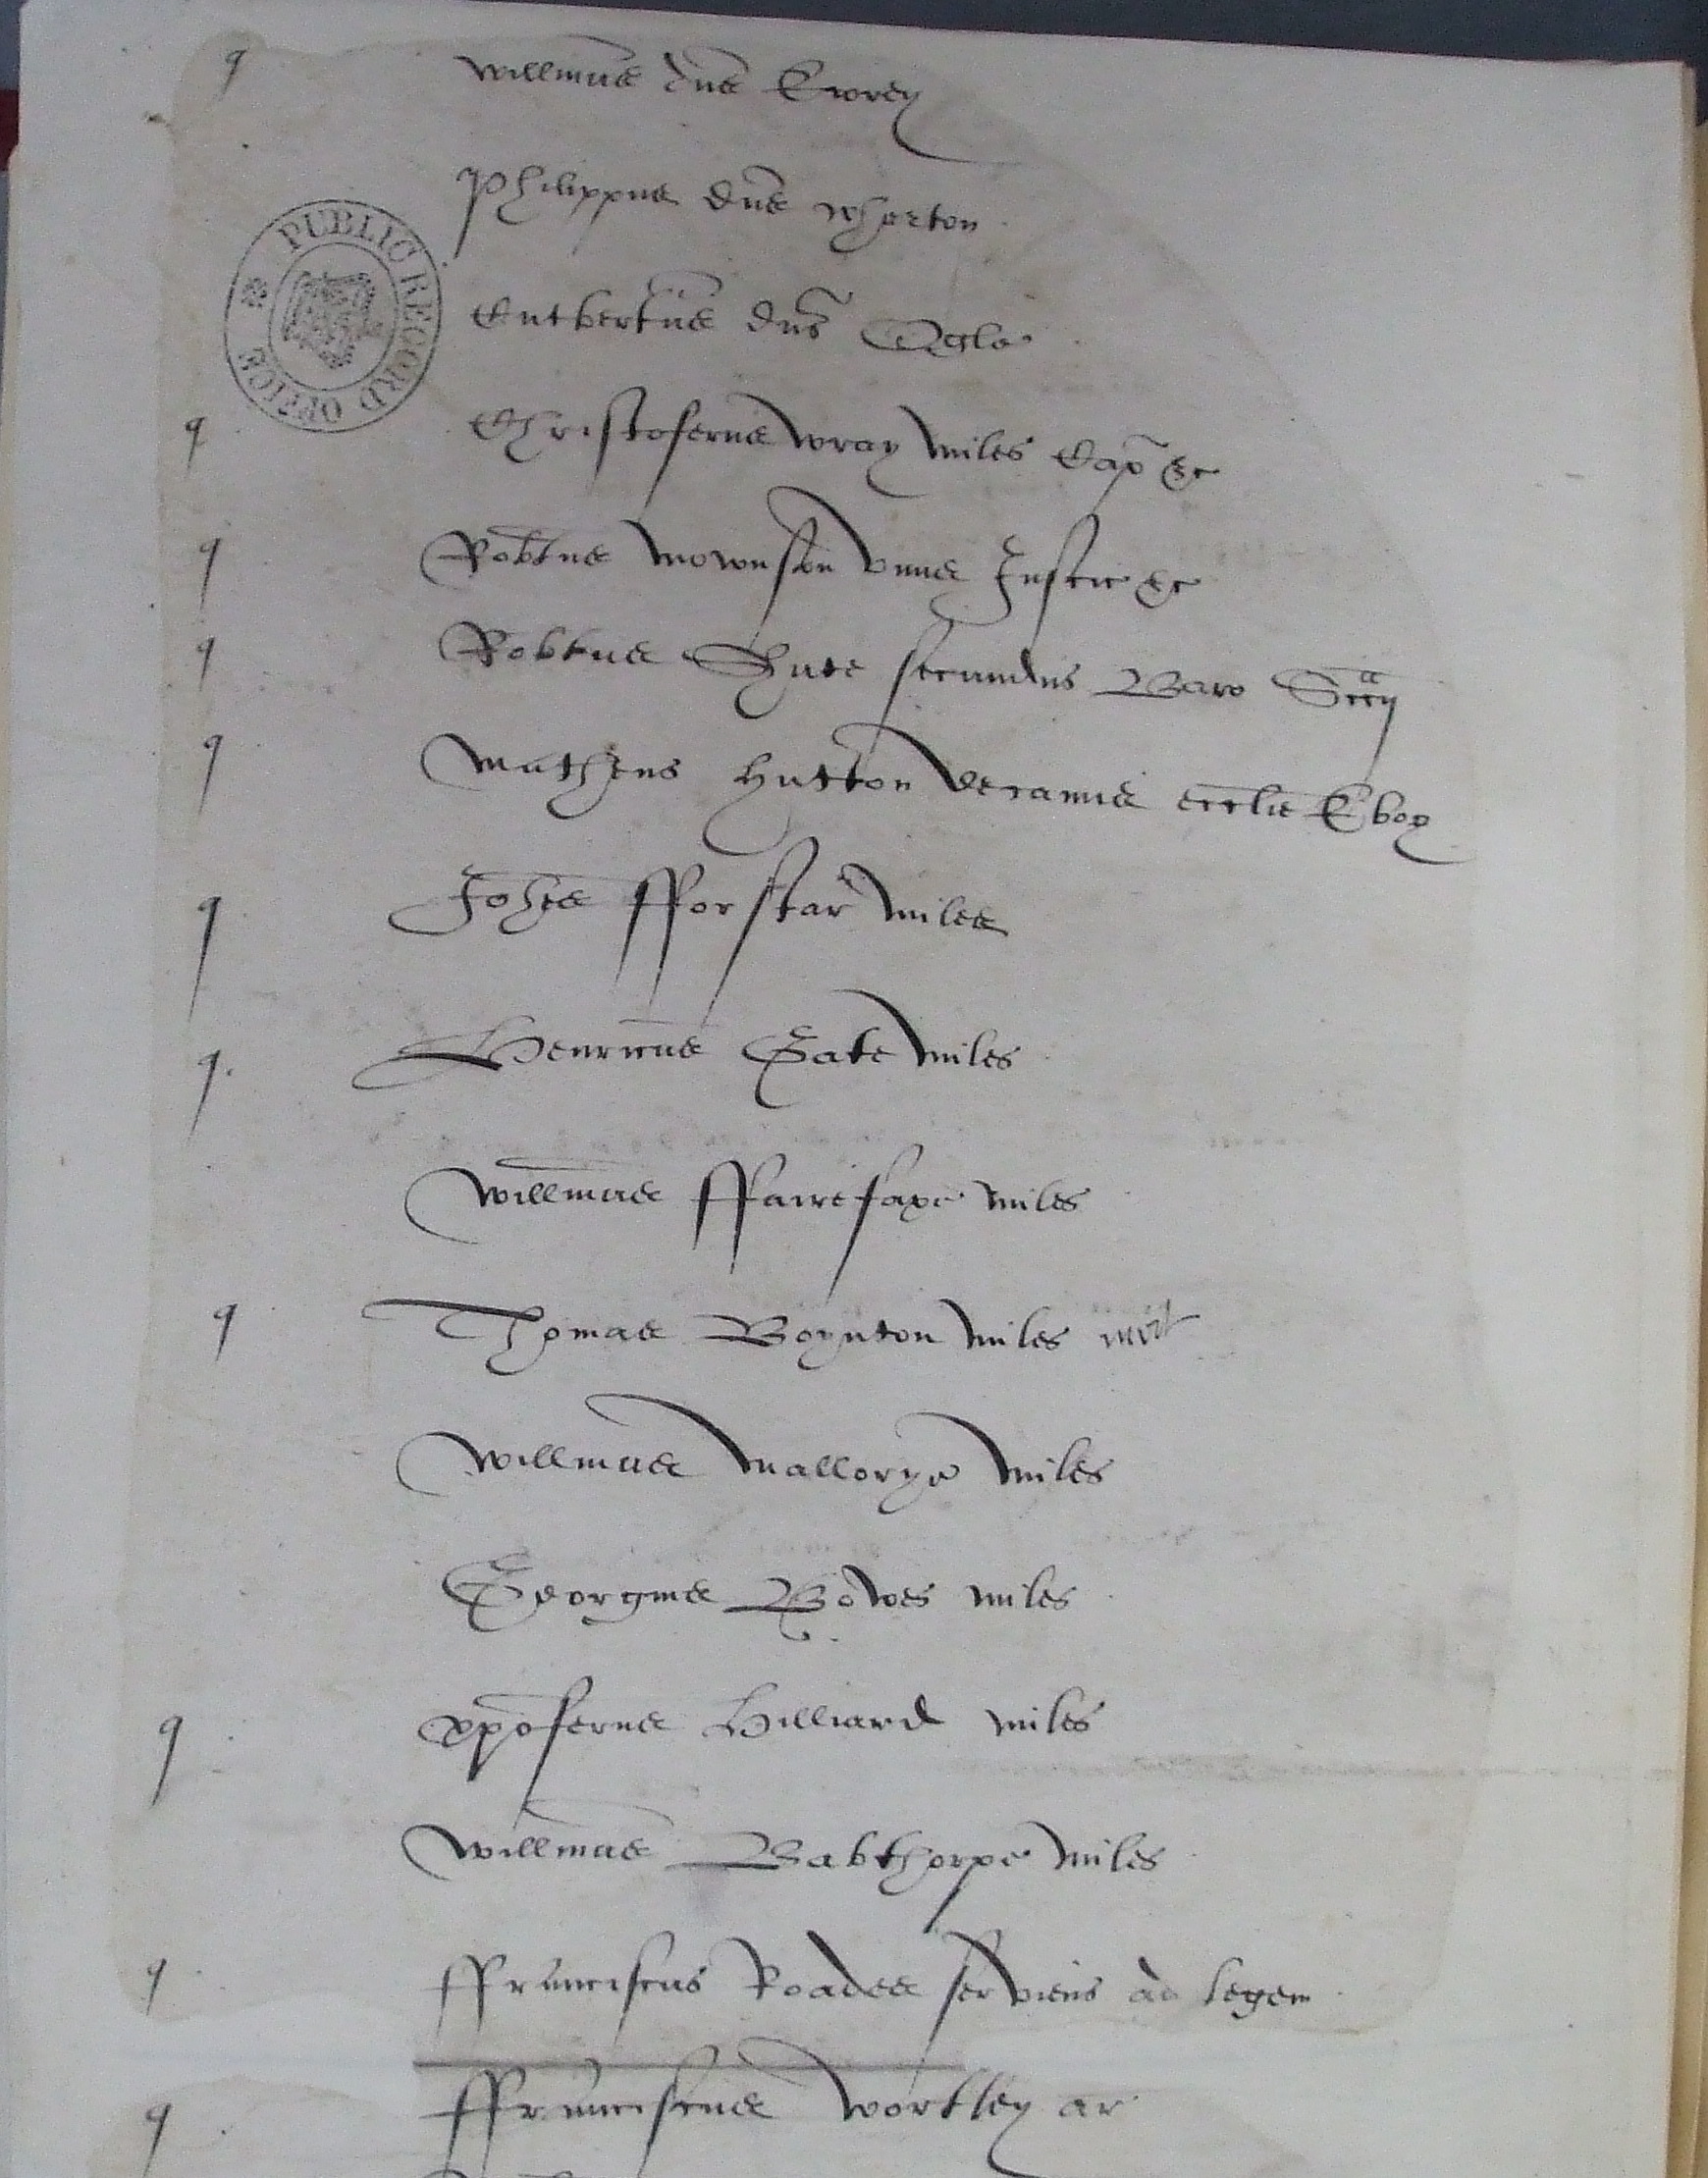 q Willmus dns Ewrey
Philippus dns Wharton
PUBLIC RECORD OFFICE
Cutbertus dns Ogle
q Christoferus Wray miles Cap &c
q Robtus Mownson unus Justic &c
q Robtus Shute secundus Baro Sccij
q Matheus Hutton decanus ecclie Ebor
q Johes fforstar miles
q. Henricus Gate miles
Willmus ffairefaxe miles
q Thomas Boynton miles mort
Willmus Mallorye miles
Georgius Bowes miles
q xpoferus Hilliard miles
Willmus Babthorpe miles
q ffranciscus Roades serviens ad legem
q ffranciscus Wortley ar